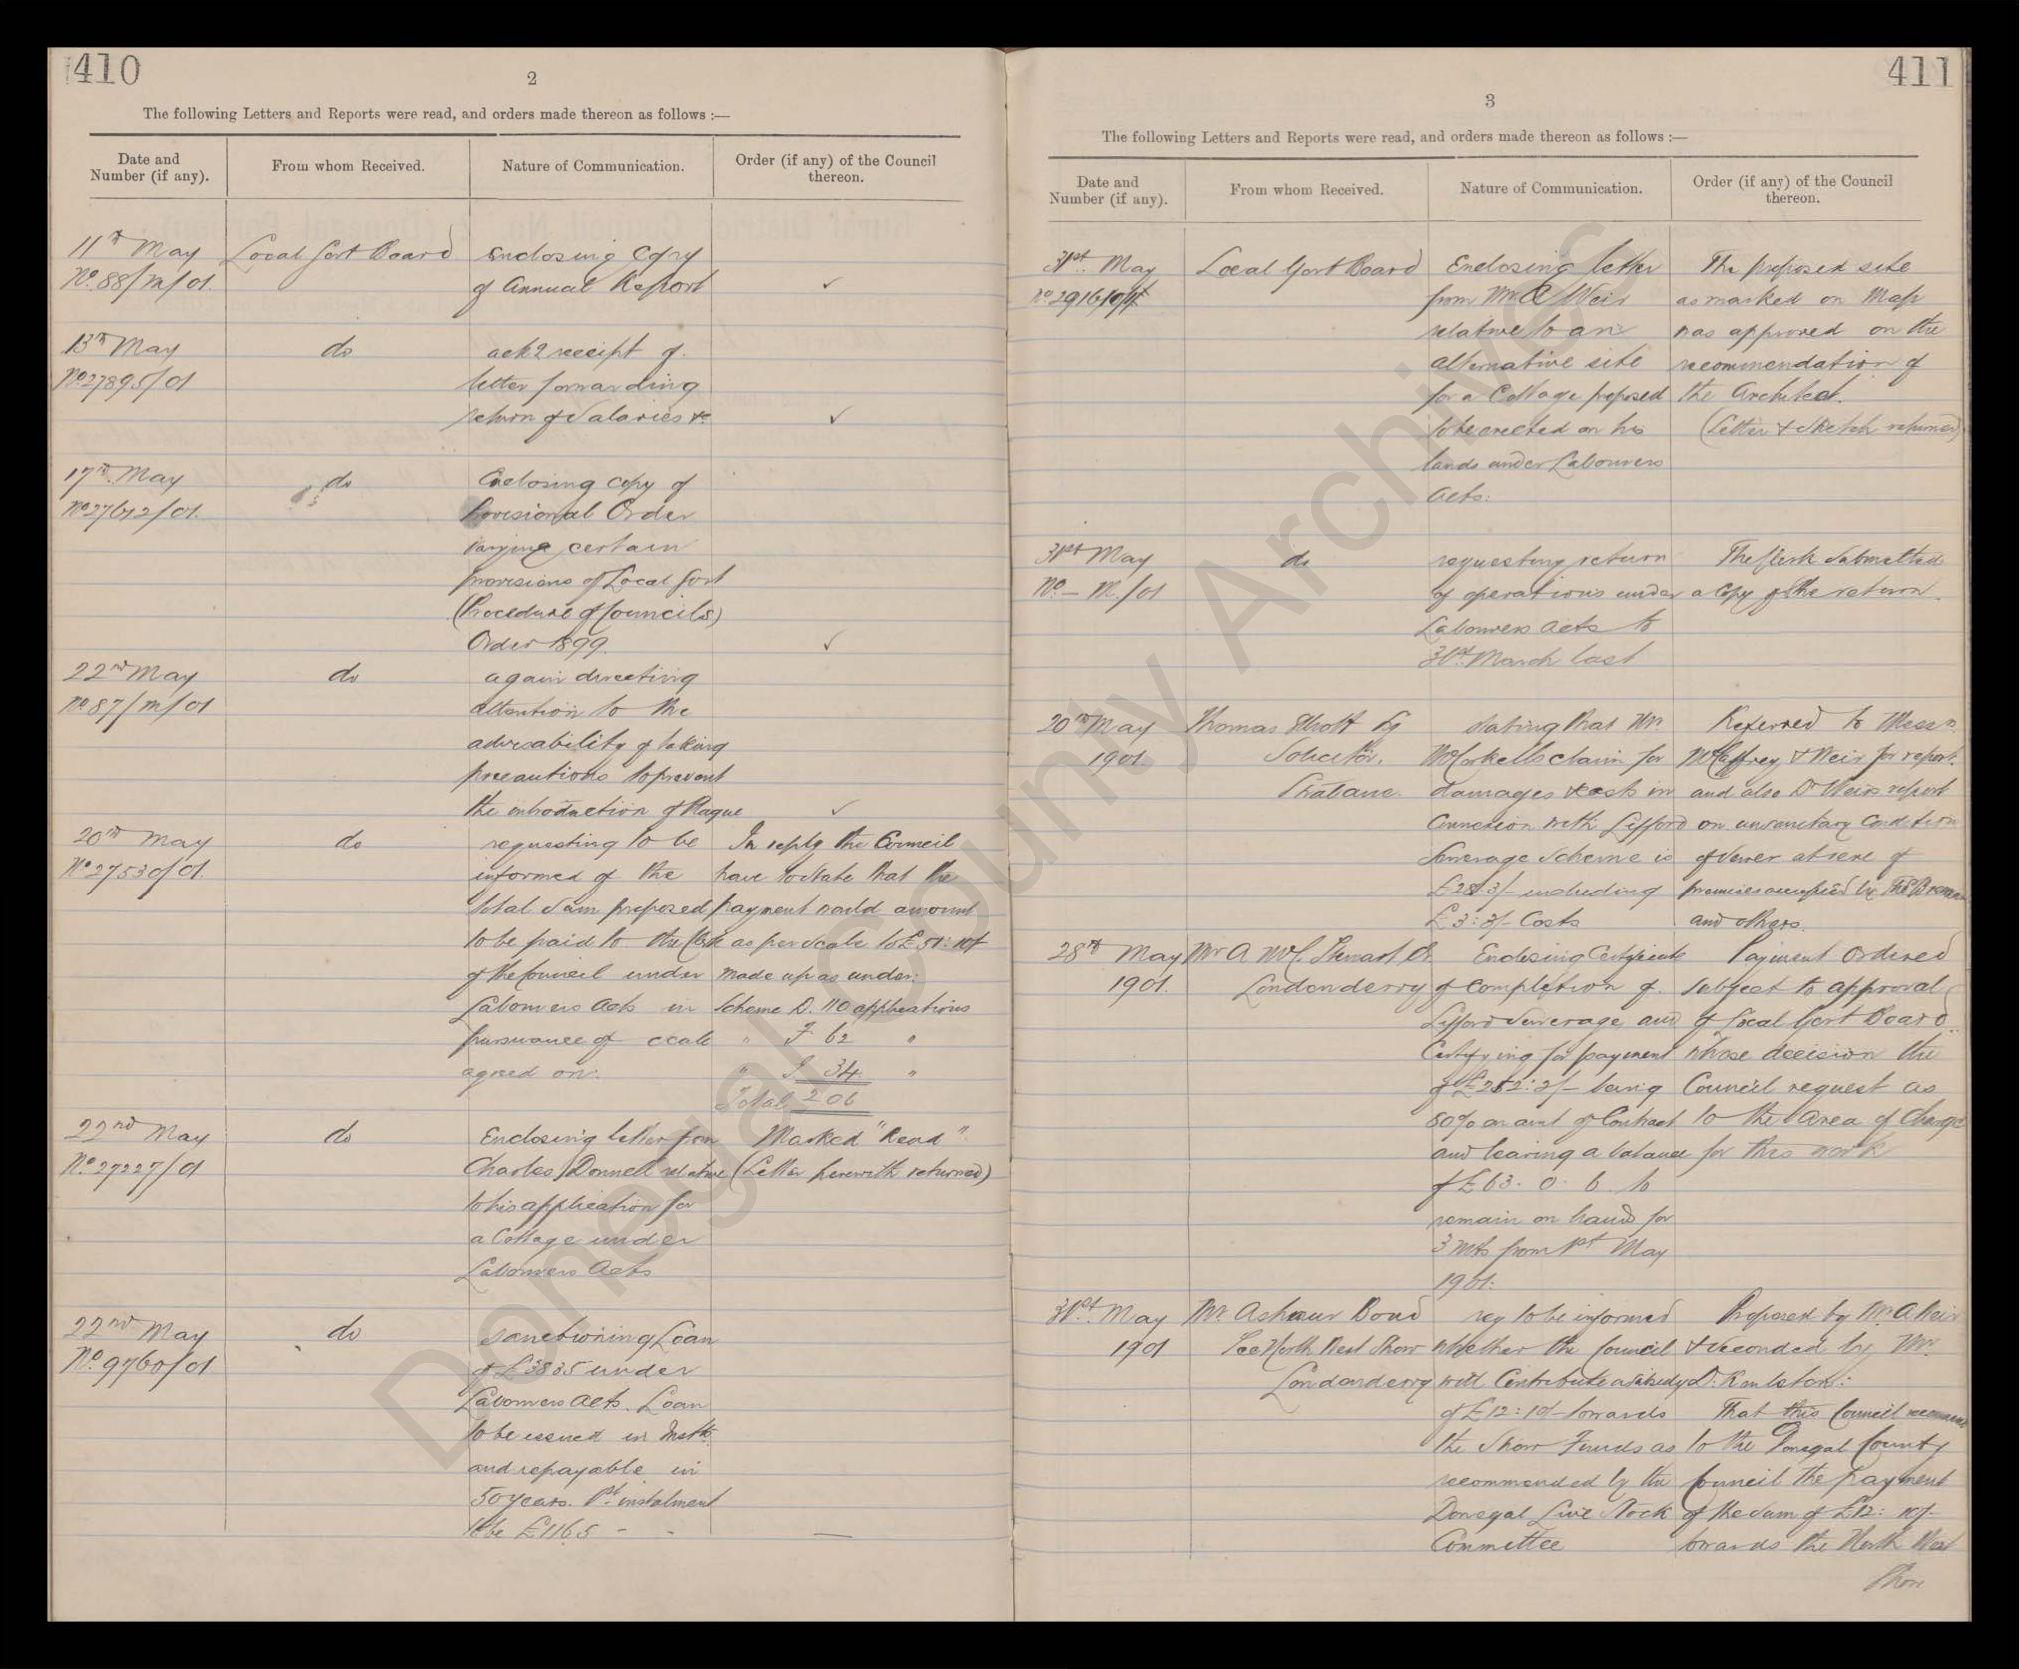 410
2
The following Letters and Reports were read, and orders made thereon as follows :—
Date and Number (if any).
From whom Received.
Nature of Communication.
Order (if any) of the Council thereon.
11th May
No. 88/M/01
Local Govt Board
Enclosing copy
of Annual Report
✓
13th May
No 27895/01
do
ackg receipt of
letter forwarding
return of Salaries &c
✓
17th May
No 27612/01
do
Enclosing copy of
Provisional Order
varying certain
provisions of Local Govt
(Procedure of Councils)
Order 1899.
✓
22nd May
No 87/M/01
do
again directing
attention to the
advisability of taking
precautions to prevent
the introduction of Plague
✓
20th May
No 27530/01
do
requesting to be
informed of the
total sum proposed
to be paid to the Clerk
of the Council under
Labourers Acts in
pursuance of scale
agreed on.
In reply the Council
have to state that the
payment would amount
as per scale to £51:10/-
made up as under:
Scheme D. 110 applications
" F 62 "
" G 34 "
Total 206
22nd May
No 27227/01
do
Enclosing letter from
Charles Donnell relative
to his application for
a Cottage under
Labourers Acts
Marked "Read"
(Letter herewith returned)
22nd May
No. 9760/01
do
sanctioning Loan
of £3835 under
Labourers Acts. Loan
to be issued in Insts.
and repayable in
50 years. 1st instalment
to be £1165 - -
—
411
3
The following Letters and Reports were read, and orders made thereon as follows :—
Date and Number (if any).
From whom Received.
Nature of Communication.
Order (if any) of the Council thereon.
31st May
Local Govt Board
Enclosing letter
from Mr A Weir
relative to an
alternative site
for a Cottage proposed
to be erected on his
lands under Labourers
Acts:
The proposed site
as marked on Map
was approved on the
recommendation of
the Architect.
(Letter & Sketch returned)
31st May
No - M/01
do
requesting return
of operations under
Labourers Acts to
31st March last
The Clerk Submitted
a copy of the return.
20th May
1901.
Thomas Elliott Esq
Solicitor,
Strabane.
stating that Mr.
McCorkells claim for
damages & costs in
Connexion with Lifford
Sewerage Scheme is
£28:3/- including
£3:3/- Costs
Referred to Messrs.
McCaffrey & Weir for report.
and also Dr Weirs report
on unsanitary condition
of sewer at rere of
premises occupied by
and others.
28th May
1901.
Mr A McC. Stewart
Londonderry
Enclosing Certificate
of completion of
Lifford Sewerage and
Certifying for payment
of £252:2/- being
80% on amt of Contract
and leaving a balance
of £63. 0. 6. to
remain on hand for
3 mts from 1st May
1901.
Payment Ordered
subject to approval
of Local Govt Board
whose decision the
Council request as
to the Area of Charge
for this work
31st May
1901
Mr. Ashmur Bond
Sec North West Show
Londonderry
req to be informed
whether the Council
will Contribute a Subsidy
of £12:10/- towards
the Show Funds as
recommended by the
Donegal Live Stock
Committee
Proposed by Mr A Weir
& seconded by Mr.
D. Rankston:
That this Council recommend
to the Donegal County
Council the payment
of the sum of £12:10/-
towards the North West
Show
Donegal County Archives